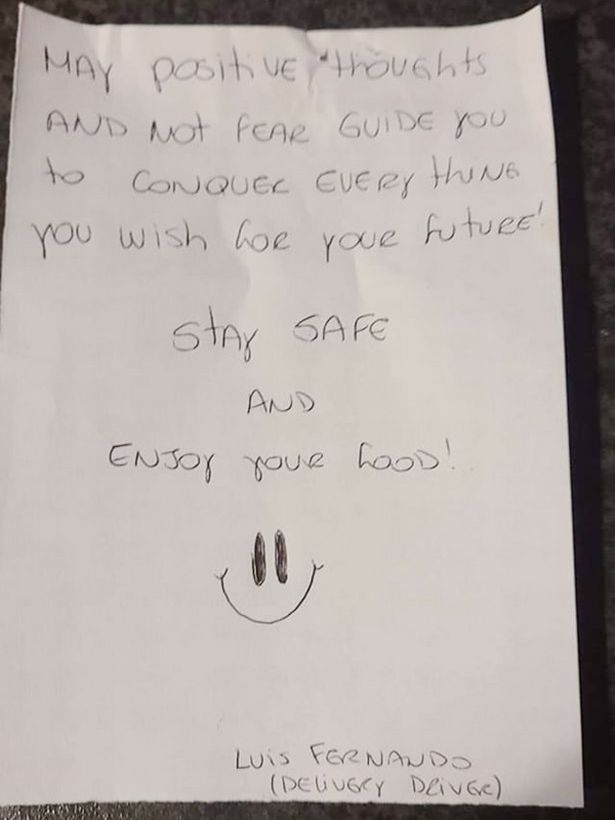 MAY positive thoughts
AND Not FEAR GUIDE you
to CONQUER EVERy thiNG
you wish for your future!
Stay SAFE
AND
ENJOY your food!
Luis FERNANDO
(DELIVERY DRIVER)